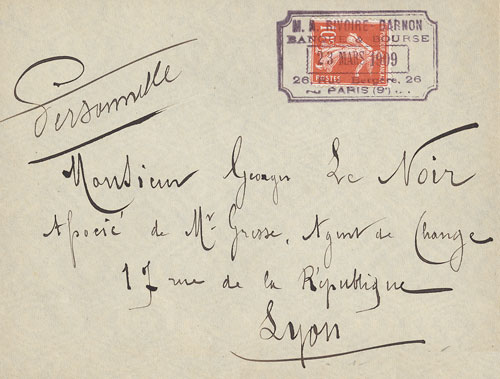 M. A. RIVOIRE-DARNON
BANQUE & BOURSE
23 MARS 1909
26, Rue Bergère, 26
PARIS (9e)
10c
Personnelle
Monsieur Georges Le Noir
Associé de Mr Grosse, Agent de Change
17 rue de la République
Lyon